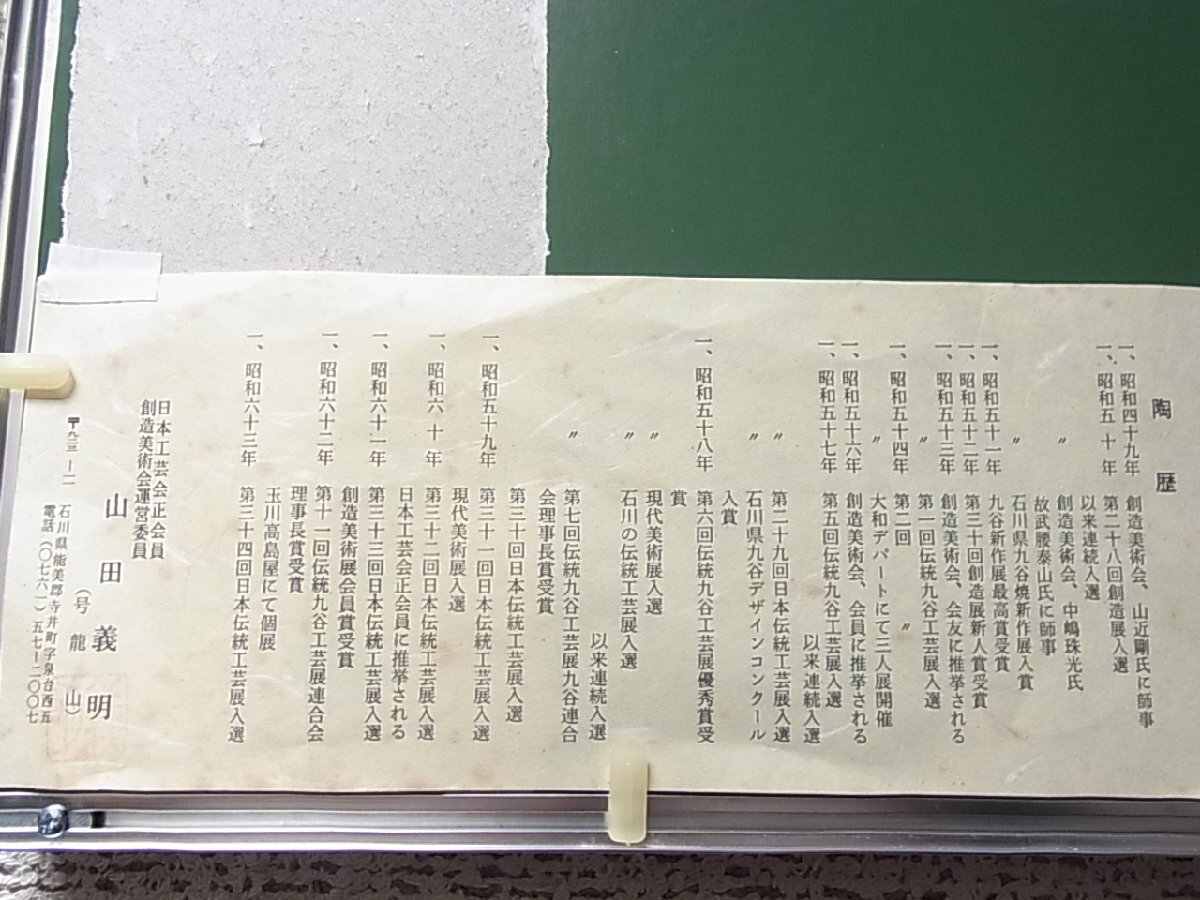 陶歴
一、昭和四十九年 創造美術会、山近剛氏に師事
一、昭和五十年 第二十八回創造展入選
以来連続入選
〃 創造美術会、中嶋珠光氏
故武腰泰山氏に師事
〃 石川県九谷焼新作展入賞
一、昭和五十一年 九谷新作展最高賞受賞
一、昭和五十二年 第三十回創造展新人賞受賞
一、昭和五十三年 創造美術会、会友に推挙される
〃 第一回伝統九谷工芸展入選
一、昭和五十四年 第二回 〃
〃 大和デパートにて三人展開催
一、昭和五十六年 創造美術会、会員に推挙される
一、昭和五十七年 第五回伝統九谷工芸展入選
以来連続入選
〃 第二十九回日本伝統工芸展入選
〃 石川県九谷デザインコンクール
入賞
一、昭和五十八年 第六回伝統九谷工芸展優秀賞受
賞
〃 現代美術展入選
〃 石川の伝統工芸展入選
以来連続入選
〃 第七回伝統九谷工芸展九谷連合
会理事長賞受賞
第三十回日本伝統工芸展入選
一、昭和五十九年 第三十一回日本伝統工芸展入選
現代美術展入選
一、昭和六十年 第三十二回日本伝統工芸展入選
日本工芸会正会員に推挙される
一、昭和六十一年 第三十三回日本伝統工芸展入選
創造美術展会員賞受賞
一、昭和六十二年 第十一回伝統九谷工芸展連合会
理事長賞受賞
玉川高島屋にて個展
一、昭和六十三年 第三十四回日本伝統工芸展入選
日本工芸会正会員
創造美術会運営委員
山田義明
（号 龍山）
〒九二三―一一 石川県能美郡寺井町字泉台西五
電話（〇七六一）五七―二〇〇七